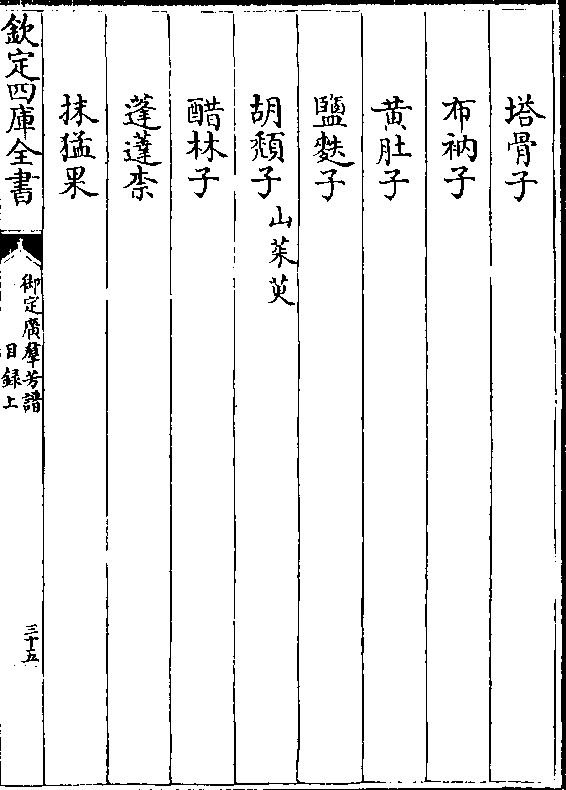 塔骨子
布衲子
黄肚子
鹽麩子
胡頽子山茱萸
醋林子
蓬蓬柰
抹猛果
欽定四庫全書
御定廣羣芳譜
目録上
三十五